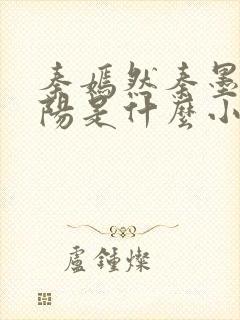 秦嫣然秦墨
陽是什麼小
盧鍾燦